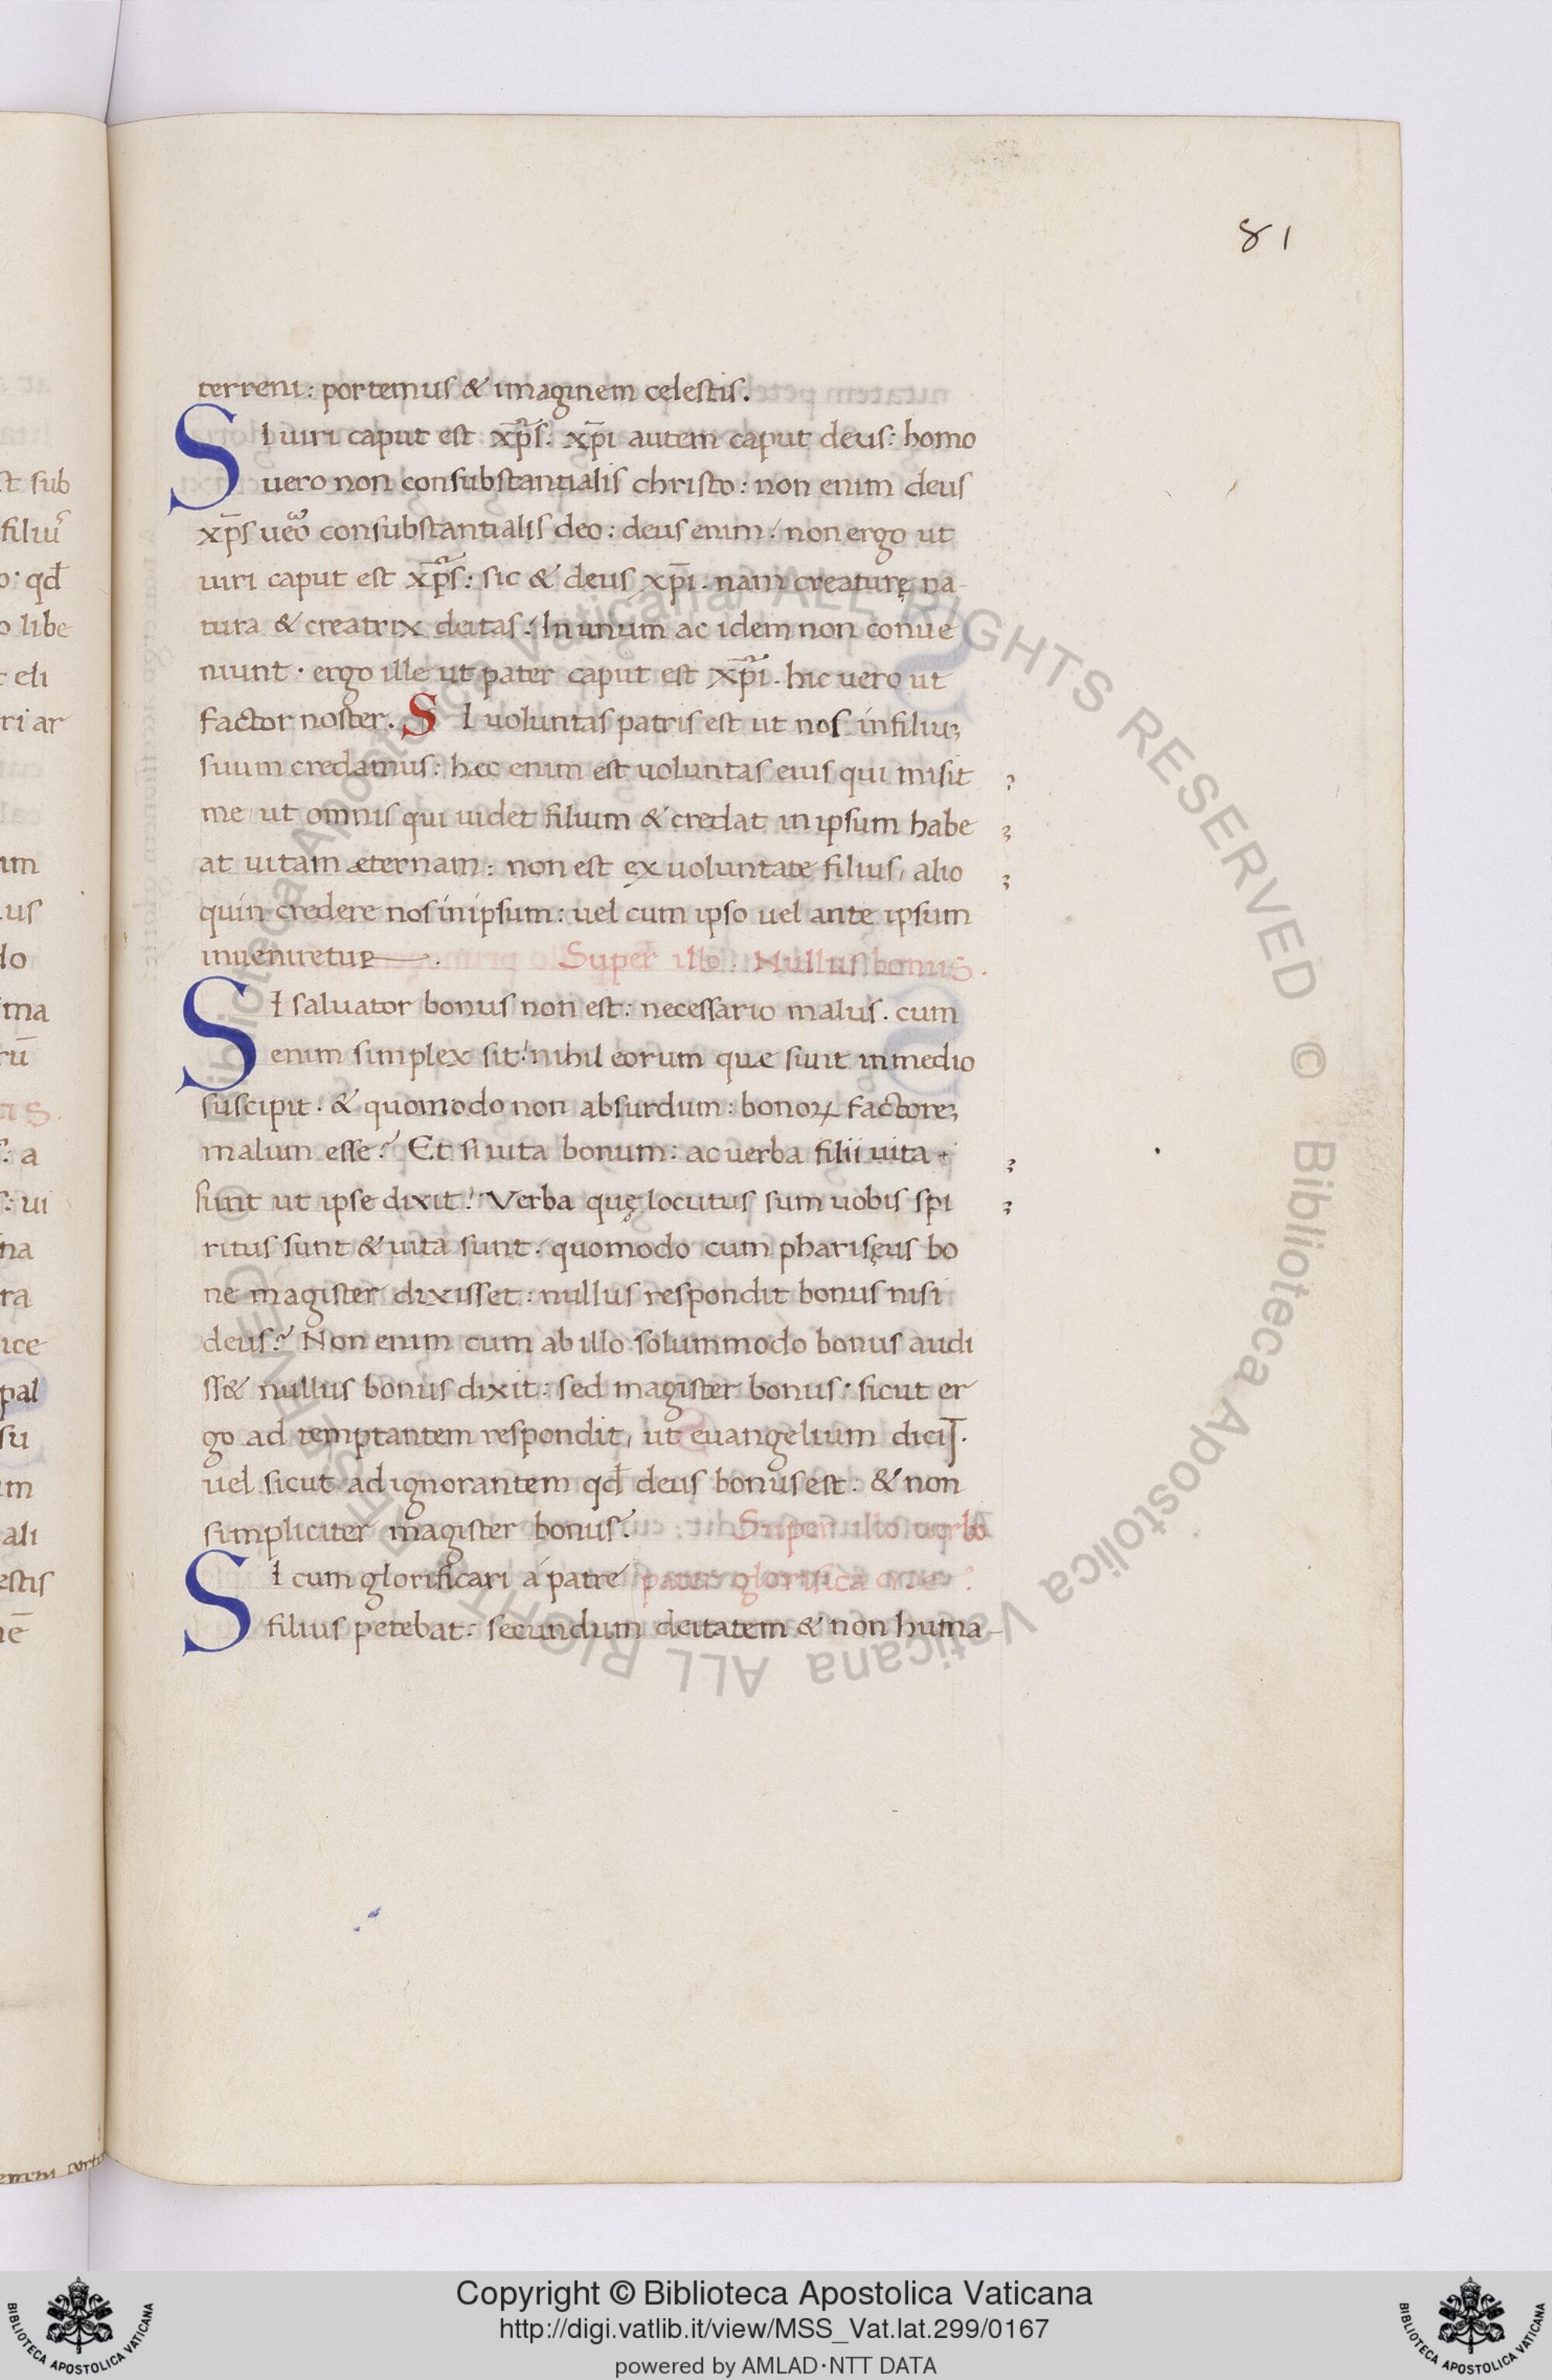 81
terreni: portemus & imaginem celestis.
SI uiri caput est xp̄s. xp̄i autem caput deus: homo
uero non consubstantialis christo: non enim deus
xp̄s ueo consubstantialis deo: deus enim: non ergo ut
uiri caput est xp̄s: sic & deus xp̄i. nam creaturę na-
tura & creatrix deitas: In unum ac idem non conue
niunt. ergo ille ut pater caput est xp̄i. hic uero ut
factor noster. SI uoluntas patris est ut nos in filiuꝫ
suum credamus: hæc enim est uoluntas eius qui misit
me ut omnis qui uidet filium & credat in ipsum habe
at uitam æternam: non est ex uoluntate filius, alio
quin credere nos in ipsum: uel cum ipso uel ante ipsum
inueniretur. Super illo. Nullus bonus.
SI saluator bonus non est: necessario malus. cum
enim simplex sit: nihil eorum quæ sunt in medio
suscipit. & quomodo non absurdum: bonoꝝ factoreꝫ
malum esse? Et si uita bonum: ac uerba filii uita
sunt ut ipse dixit: Verba quę locutus sum uobis spi
ritus sunt & uita sunt. quomodo cum pharisęus bo
ne magister dixisset: nullus respondit bonus nisi
deus? Non enim cum ab illo solummodo bonus audi
ss& nullus bonus dixit: sed magister bonus. sicut er
go ad temptantem respondit, ut euangelium dicit.
uel sicut ad ignorantem qđ deus bonus est: & non
simpliciter magister bonus. Super illo uerbo
SI cum glorificari á patre pater glorifica me:
filius petebat: secundum deitatem & non huma-
Copyright © Biblioteca Apostolica Vaticana
http://digi.vatlib.it/view/MSS_Vat.lat.299/0167
powered by AMLAD·NTT DATA
BIBLIOTECA APOSTOLICA VATICANA
BIBLIOTECA APOSTOLICA VATICANA